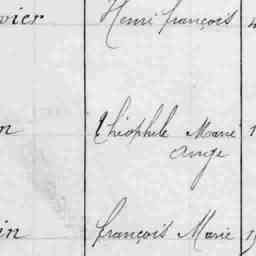 vier Henri françois 4
n Théophile Marie 1
Ange
in françois Marie 19